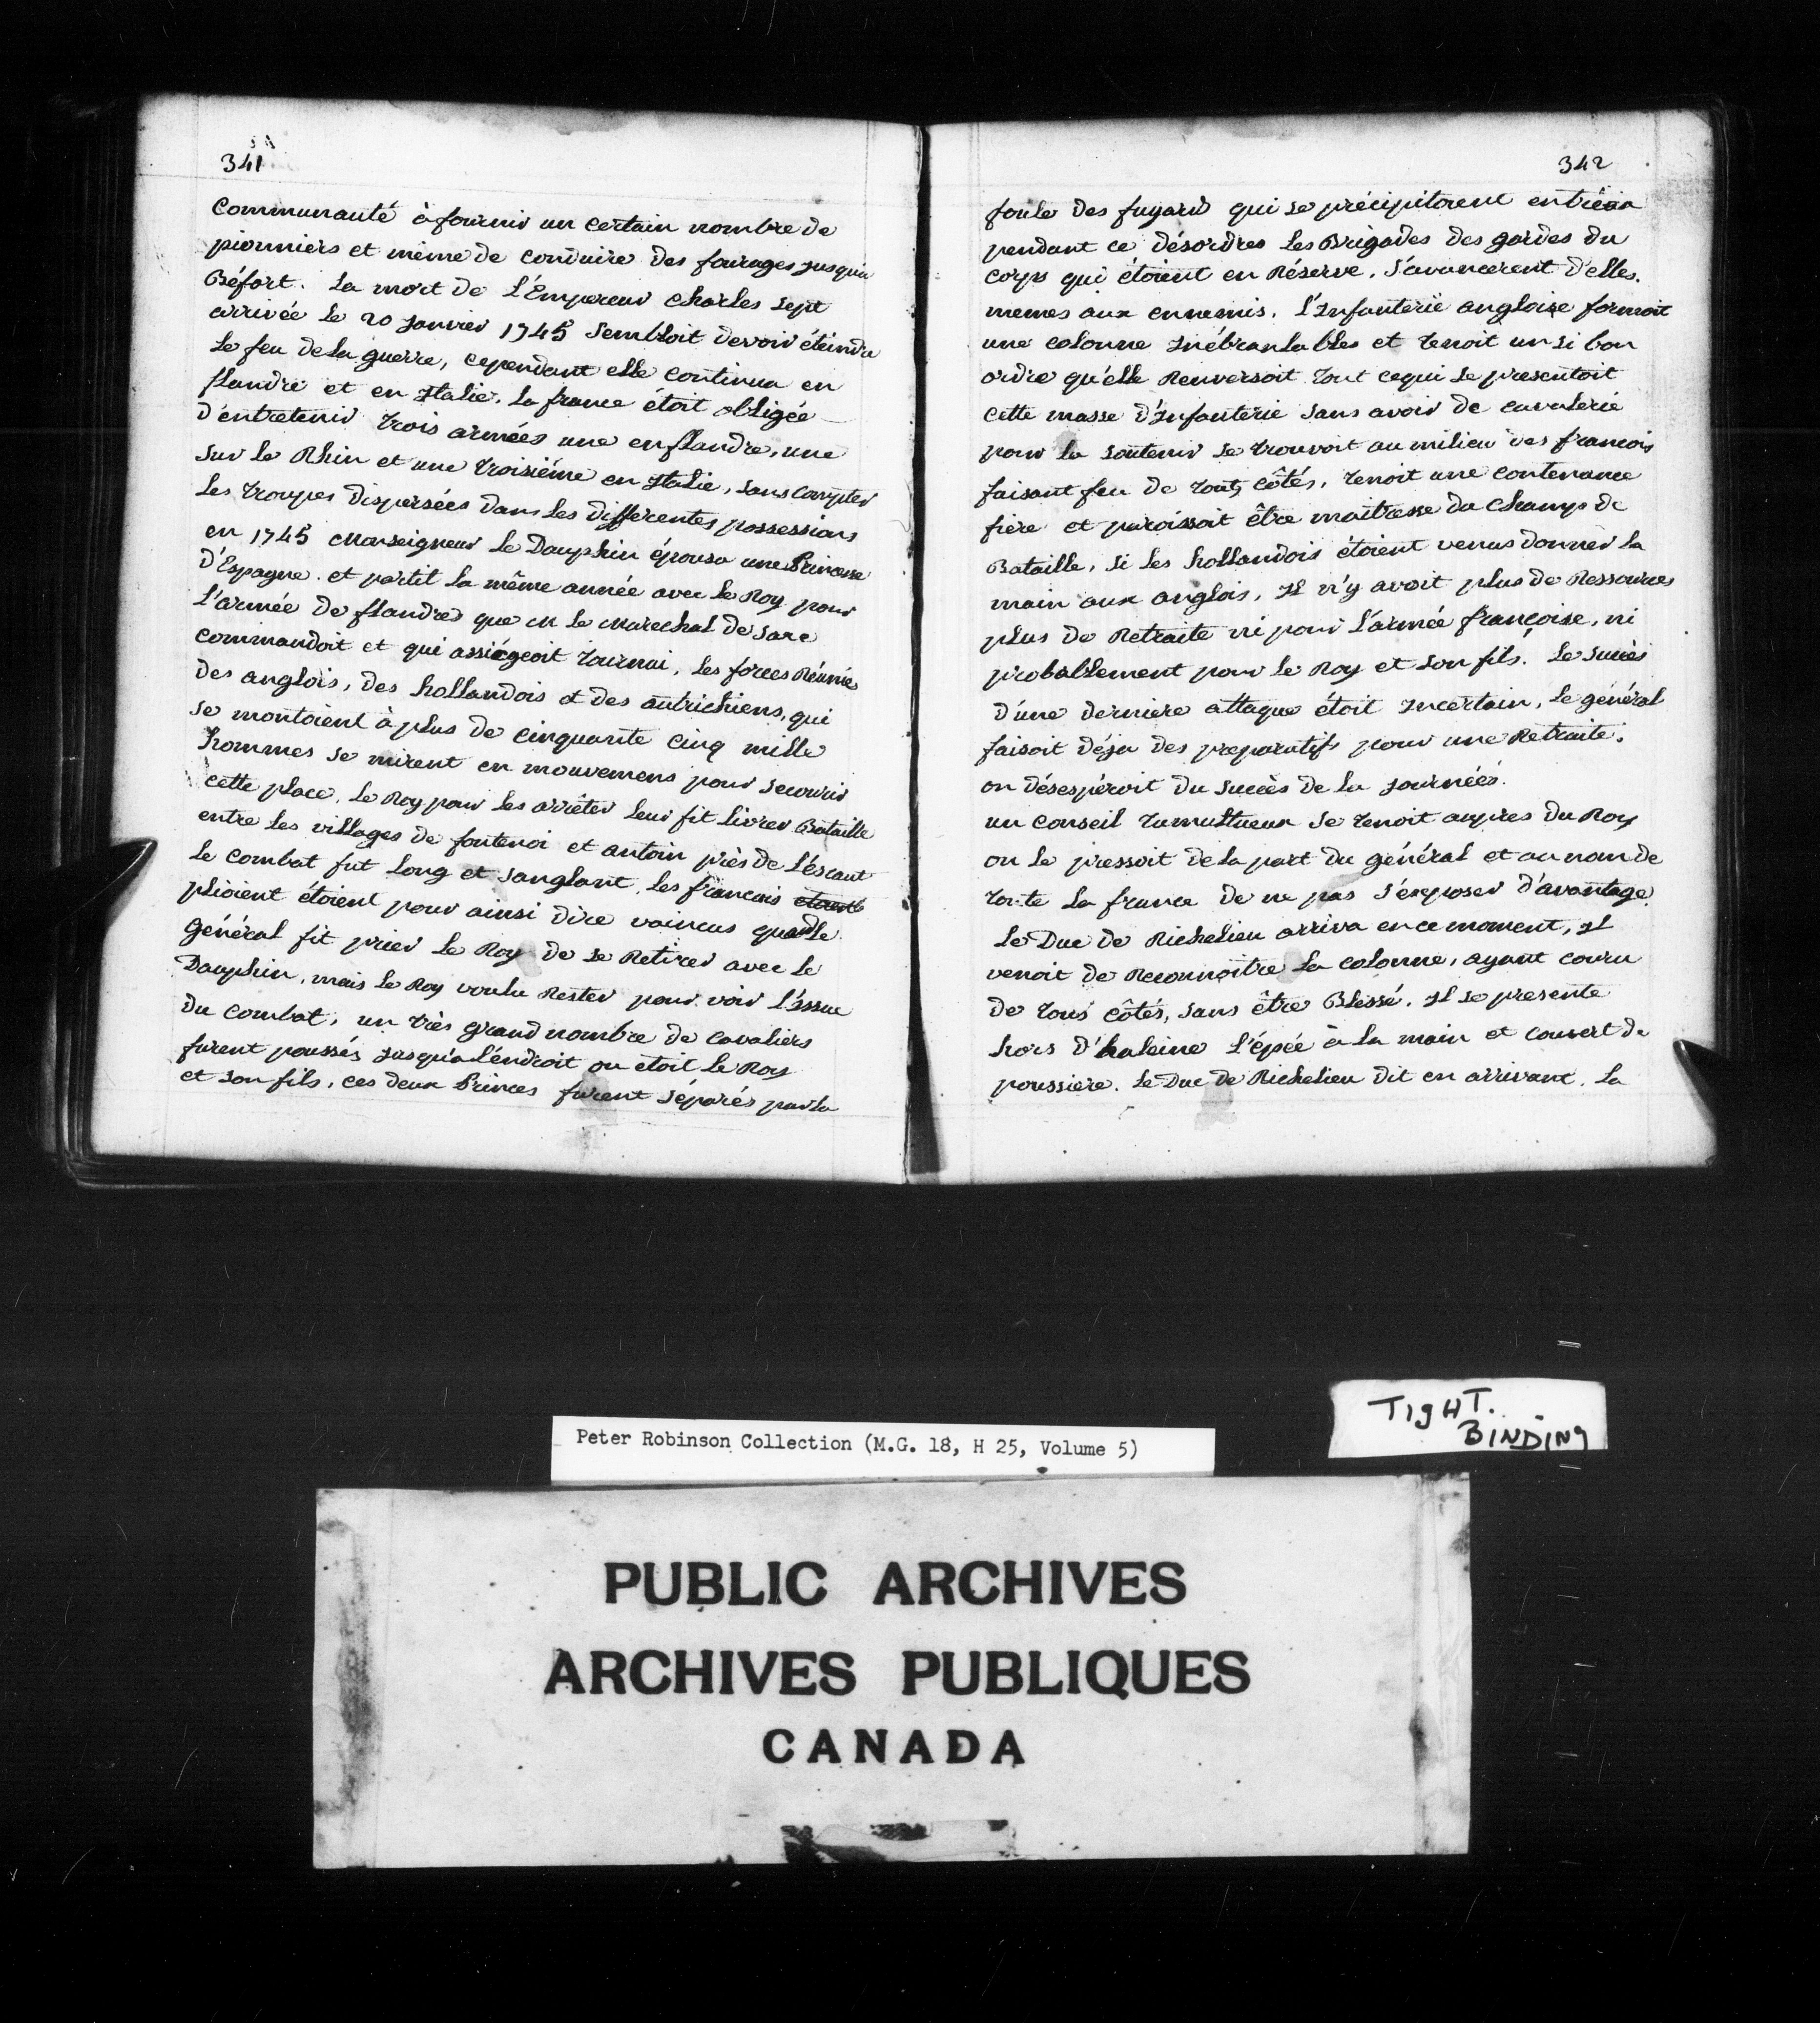 341
communauté à fournir un certain nombre de
pionniers et même de conduire des fourages jusqu'a
Béfort. La mort de L'Empereur charles sept
arrivée le 20 janvier 1745 sembloit devoir éteindre
le feu de la guerre, cependant elle continua en
flandre et en Italie. la france étoit obligée
d'entretenir trois armées une en flandre, une
sur le Rhin et une troisième en Italie, sans compter
les troupes dispersées dans les differentes possessions
en 1745 Monseigneur le Dauphin épousa une Princesse
d'Espagne. et partit la même année avec le Roy pour
l'armée de flandres que M le Marechal de saxe
commandoit et qui assiégeoit Tournai. les forces Réunies
des anglois, des hollandois et des autrichiens, qui
se montoient à plus de cinquante cinq mille
hommes se mirent en mouvemens pour secourir
cette place. le Roy pour les arrêter leur fit livrer Bataille
entre les villages de fontenoi et antoin près de L'éscaut
Le combat fut long et sanglant. les francois étoient
plioient étoient pour ainsi dire vaincus quand le
Général fit prier le Roy de se Retirer avec le
Dauphin, mais le Roy voulu Rester pour voir L'issue
du combat, un très grand nombre de cavaliers
furent poussés jusqu'a l'éndroit ou étoit le Roy
et son fils, ces deux Princes furent séparés par la
342
foule des fuyard qui se précipitoient entr'eux
pendant ce désordres les Brigades des gardes du
corps qui étoient en Réserve, s'avancerent d'elles.
memes aux ennemis. l'Infanterie angloise formoit
une colonne Inébranlables et tenoit un si bon
ordre qu'elle Renversoit tout cequi se presentoit
cette masse d'Infanterie sans avoir de cavalerie
pour la soutenir se trouvoit au milieu des francois
faisant feu de touts côtés, tenoit une contenance
fière et paroissoit être maitresse du champs de
Bataille, si les hollandois étoient venus donner la
main aux anglois, Il n'y avoit plus de Ressources
plus de Retraite ni pour l'armée françoise, ni
probablement pour le Roy et son fils. Le succès
d'une derniere attaque étoit Incertain, le général
faisoit déja des preparatifs pour une Retraite.
on désespéroit du succès de la journéés.
un conseil tumultueux se tenoit aupres du Roy
on le pressoit de la part du général et au nom de
toute la france de ne pas s'exposer d'avantage
Le Duc de Richelieu arriva en ce moment, Il
venoit de Reconnoître la colonne, ayant couru
de tous côtés, sans être Blessé. Il se presente
hors d'haleine l'épée à la main et couvert de
poussiere. Le Duc de Richelieu dit en arrivant. La
TIGHT.
BINDING
Peter Robinson Collection (M.G. 18, H 25, Volume 5)
PUBLIC ARCHIVES
ARCHIVES PUBLIQUES
CANADA